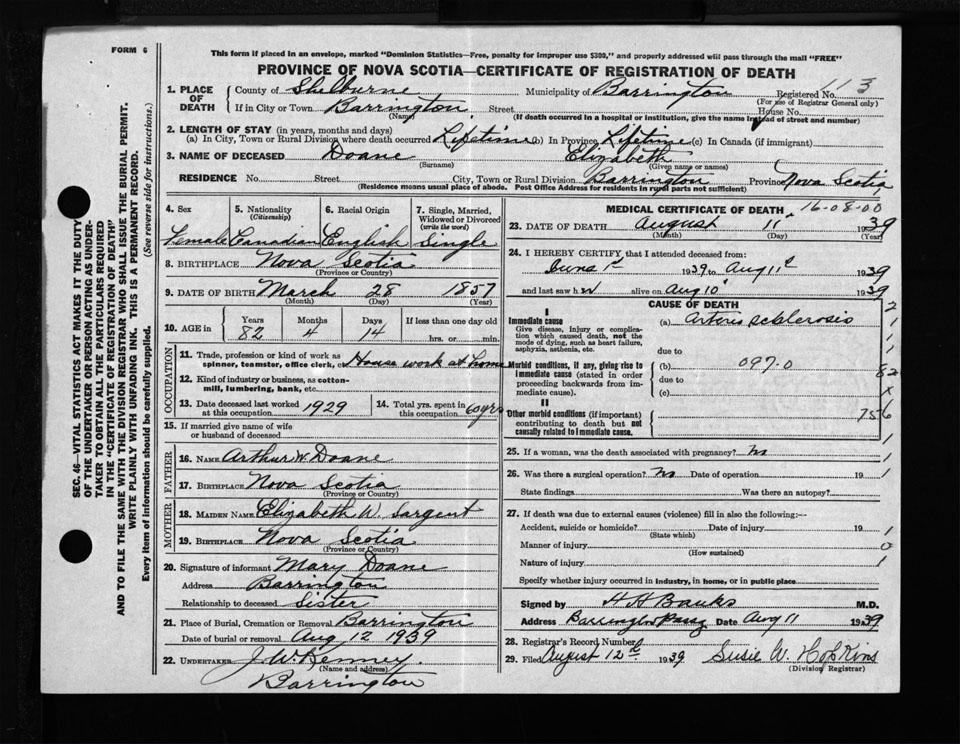 FORM 6
This form if placed in an envelope, marked "Dominion Statistics—Free, penalty for improper use $300," and properly addressed will pass through the mail "FREE"
PROVINCE OF NOVA SCOTIA—CERTIFICATE OF REGISTRATION OF DEATH
1. PLACE OF DEATH County of Shelburne Municipality of Barrington Registered No. 113
(For use of Registrar General only)
If in City or Town Barrington Street House No.
(Name) (If death occurred in a hospital or institution, give the name instead of street and number)
2. LENGTH OF STAY (in years, months and days)
(a) In City, Town or Rural Division where death occurred Lifetime (b) In Province Lifetime (c) In Canada (if immigrant)
3. NAME OF DECEASED Doane Elizabeth
(Surname) (Given name or names)
RESIDENCE No. Street City, Town or Rural Division Barrington Province Nova Scotia
(Residence means usual place of abode. Post Office Address for residents in rural parts not sufficient)
4. Sex 5. Nationality (Citizenship) 6. Racial Origin 7. Single, Married, Widowed or Divorced (write the word)
Female Canadian English Single
8. BIRTHPLACE Nova Scotia
(Province or Country)
9. DATE OF BIRTH March 28 1857
(Month) (Day) (Year)
10. AGE in Years Months Days If less than one day old
82 4 14 hrs. or min.
OCCUPATION
11. Trade, profession or kind of work as spinner, teamster, office clerk, etc. House work at home
12. Kind of industry or business, as cotton-mill, lumbering, bank, etc.
13. Date deceased last worked at this occupation 1929 14. Total yrs. spent in this occupation 60 yrs
15. If married give name of wife or husband of deceased
FATHER
16. NAME Arthur W. Doane
17. BIRTHPLACE Nova Scotia
(Province or Country)
MOTHER
18. MAIDEN NAME Elizabeth W. Sargent
19. BIRTHPLACE Nova Scotia
(Province or Country)
20. Signature of informant Mary Doane
Address Barrington
Relationship to deceased Sister
21. Place of Burial, Cremation or Removal Barrington
Date of burial or removal Aug 12 1939
22. UNDERTAKER J. W. Kenney.
(Name and address)
Barrington
MEDICAL CERTIFICATE OF DEATH 16-08-00
23. DATE OF DEATH August 11 1939
(Month) (Day) (Year)
24. I HEREBY CERTIFY, that I attended deceased from:
June 1st 1939 to Aug 11th 1939
and last saw her alive on Aug 10 1939
CAUSE OF DEATH
I
Immediate cause (a) Arterio sclerosis
Give disease, injury or complication which caused death, not the mode of dying, such as heart failure, asphyxia, asthenia, etc.
due to
Morbid conditions, if any, giving rise to immediate cause (stated in order proceeding backwards from immediate cause). (b) 097.0
due to
(c)
II
Other morbid conditions (if important) contributing to death but not causally related to immediate cause.
2
1
1
1
82
x
756
1
25. If a woman, was the death associated with pregnancy? no
26. Was there a surgical operation? no Date of operation 19
State findings Was there an autopsy?
27. If death was due to external causes (violence) fill in also the following:—
Accident, suicide or homicide? Date of injury 19
(State which)
Manner of injury
(How sustained)
Nature of injury
Specify whether injury occurred in industry, in home, or in public place
Signed by H H Banks M.D.
Address, Barrington Passg Date Aug 11 1939
28. Registrar's Record Number
29. Filed August 12th 1939 Susie W. Hopkins
(Division Registrar)
SEC. 46—VITAL STATISTICS ACT MAKES IT THE DUTY
OF THE UNDERTAKER OR PERSON ACTING AS UNDER-
TAKER TO OBTAIN ALL THE PARTICULARS REQUIRED
IN THE "CERTIFICATE OF REGISTRATION OF DEATH"
AND TO FILE THE SAME WITH THE DIVISION REGISTRAR WHO SHALL ISSUE THE BURIAL PERMIT.
WRITE PLAINLY WITH UNFADING INK. THIS IS A PERMANENT RECORD.
Every item of information should be carefully supplied. (See reverse side for instructions.)